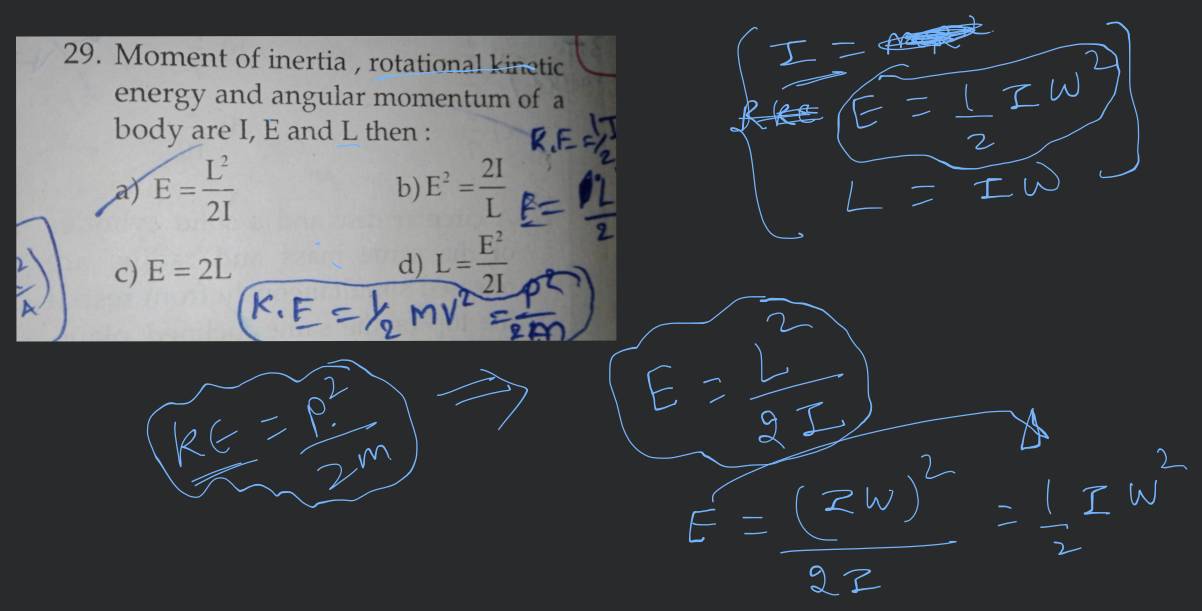 29. Moment of inertia , rotational kinetic
energy and angular momentum of a
body are I, E and L then :
R.E = 1/2 I
a) E = L²/2I
b) E² = 2I/L
E = L/2
c) E = 2L
d) L = E²/2I
K.E = 1/2 MV² = P²/2m
I =
E = 1/2 I W²
L = I W
KE = P²/2m ⇒ E = L²/2I
E = (IW)²/2I = 1/2 I W²